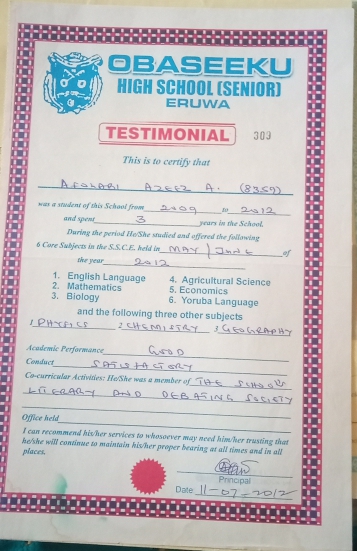 OBASEEKU
HIGH SCHOOL (SENIOR)
ERUWA
TESTIMONIAL 309
This is to certify that
AFOLABI AZEEZ A. (8359)
was a student of this School from 2009 to 2012
and spent 3 years in the School.
During the period He/She studied and offered the following
6 Core Subjects in the S.S.C.E. held in MAY/JUNE of
the year 2012
1. English Language 4. Agricultural Science
2. Mathematics 5. Economics
3. Biology 6. Yoruba Language
and the following three other subjects
1 PHYSICS 2 CHEMISTRY 3 GEOGRAPHY
Academic Performance GOOD
Conduct SATISFACTORY
Co-curricular Activities: He/She was a member of THE SCHOOL
LITERARY AND DEBATING SOCIETY
Office held
I can recommend his/her services to whosoever may need him/her trusting that
he/she will continue to maintain his/her proper bearing at all times and in all
places.
Principal
Date 11-07-2012